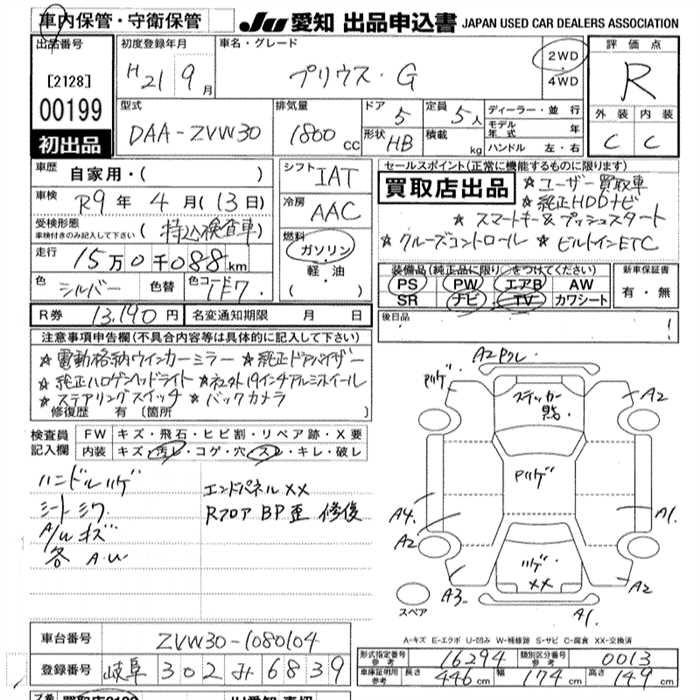 車内保管・守衛保管
JU 愛知 出品申込書 JAPAN USED CAR DEALERS ASSOCIATION
出品番号
[2128]
00199
初出品
初度登録年月
H21 9月
車名・グレード
プリウス・G
2WD
4WD
評価点
R
外装 内装
C C
型式
DAA-ZVW30
排気量
1800cc
ドア 5
形状 HB
定員 5人
積載 kg
ディーラー・並行
モデル年式 年
ハンドル 左・右
車歴 自家用・( )
車検 R9年4月(13日)
受検形態
車検付きのみ記入して下さい (持込検査車)
走行 15万0千088km
色 シルバー 色替 色コード1F7
R券 13,190円 名変通知期限 月 日
シフト IAT
冷房 AAC
燃料
ガソリン
軽・油
( )
セールスポイント(正常に機能するものに限ります)
買取店出品
☆ユーザー買取車
☆純正HDDナビ
☆スマートキー&プッシュスタート
☆クルーズコントロール ☆ビルトインETC
装備品(純正品に限り○をつけてください)
PS PW エアB AW
SR ナビ TV カワシート
新車保証書
有・無
後日品
注意事項申告欄(不具合内容等は具体的に記入して下さい)
☆電動格納ウインカーミラー ☆純正ドアバイザー
☆純正ハロゲンヘッドライト ☆社外19インチアルミホイール
☆ステアリングスイッチ ☆バックカメラ
修復歴 有 [箇所 ]
検査員記入欄
FW キズ・飛石・ヒビ割・リペア跡・X要
内装 キズ・汚レ・コゲ・穴・スレ・キレ・破レ
ハンドルハゲ
シートシワ
A/Wキズ
各A.U
エンドパネルXX
Rフロア BP歪 修復
A2Pクレ
Pハゲ
ステッカー跡
A2
Pハゲ
A4
A1
A2
ハゲ
XX
A3
A2
A1
スペア
A-キズ E-エクボ U-凹み W-補修跡 S-サビ C-腐食 XX-交換済
車台番号 ZVW30-1080104
登録番号 岐阜 302 み 6839
形式指定番号 参考 16294 類別区分番号 参考 0013
車庫証明用 参考 長さ 446cm 幅 174cm 高さ 149cm